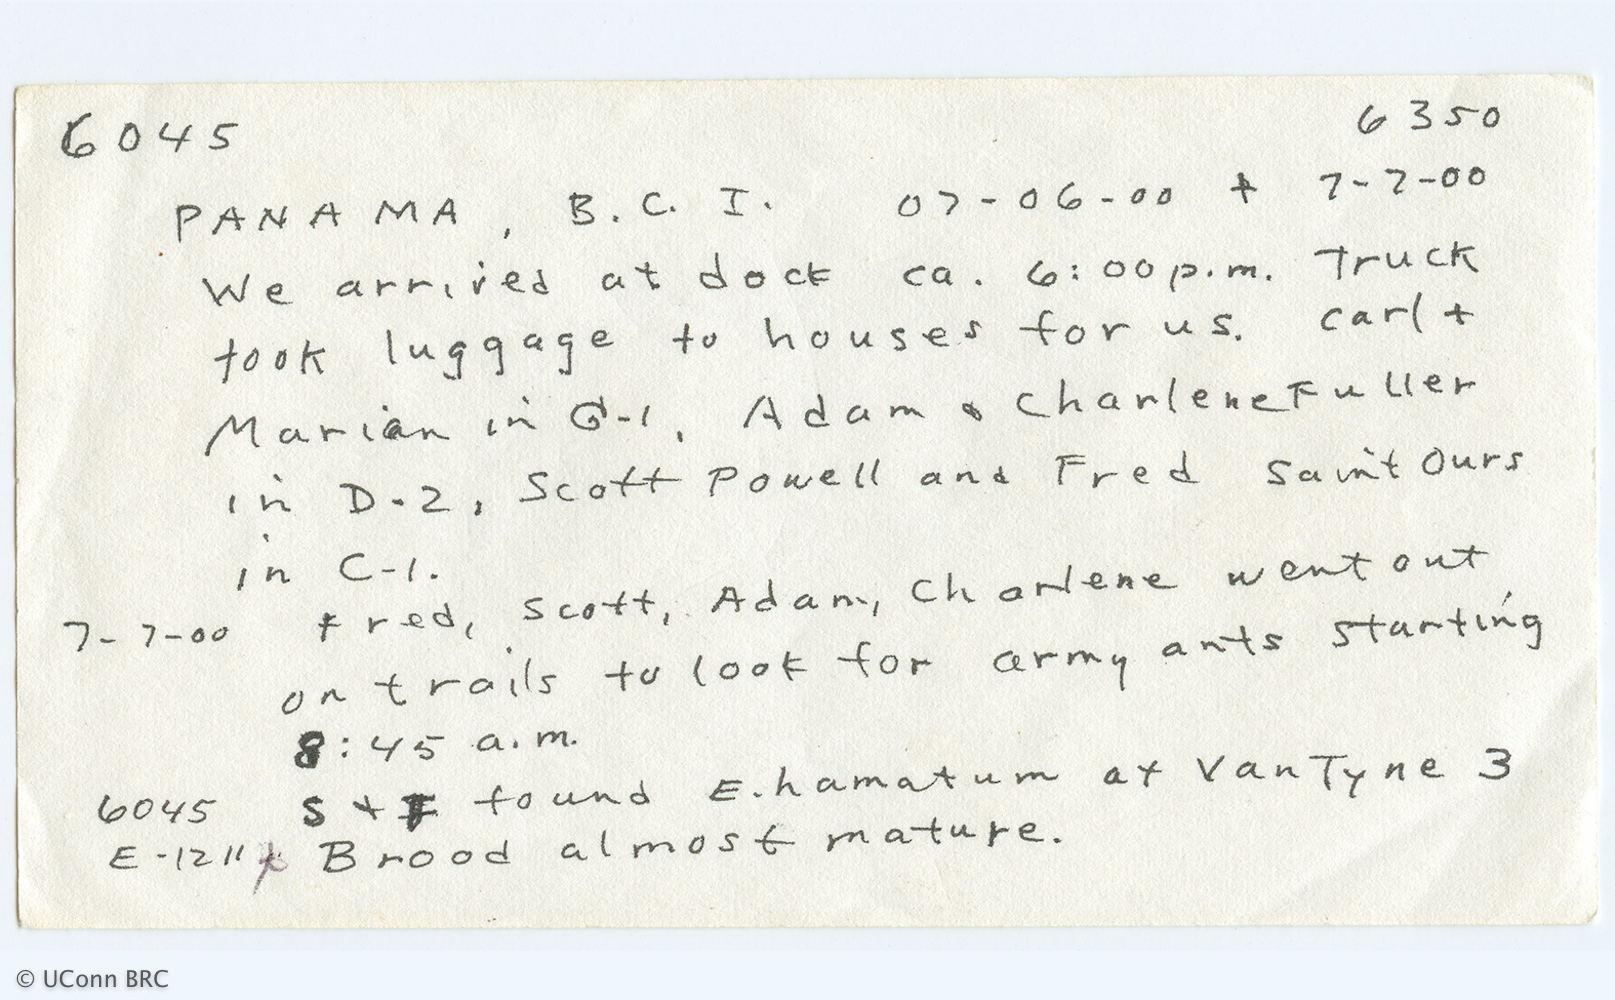 6045 6350
PANAMA, B.C.I. 07-06-00 + 7-7-00
We arrived at dock ca. 6:00 p.m. Truck
took luggage to houses for us. Carl +
Marian in G-1, Adam & Charlene Fuller
in D-2, Scott Powell and Fred Saint Ours
in C-1.
7-7-00 Fred, Scott, Adam, Charlene went out
on trails to look for army ants starting
8:45 a.m.
6045 S + F found E. hamatum at Van Tyne 3
E-1211 Brood almost mature.
© UConn BRC